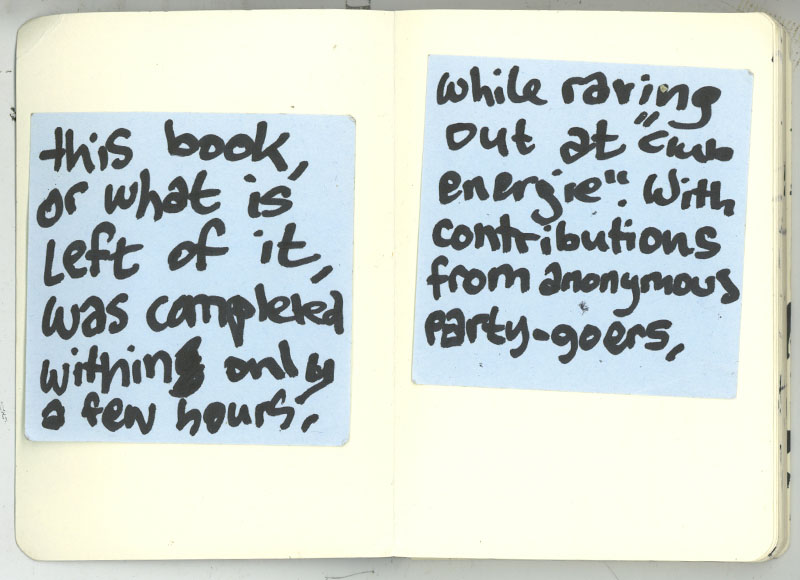 this book,
or what is
left of it,
was completed
within only
a few hours,
while raving
out at "club
energie". With
contributions
from anonymous
party-goers,